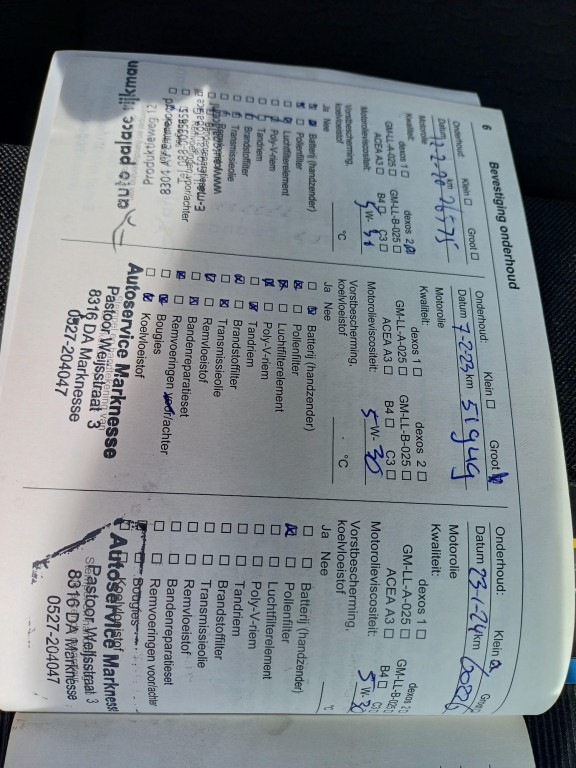 6
Bevestiging onderhoud
Onderhoud: Klein Groot
Datum km 26775
Motorolie
Kwaliteit:
dexos 1 dexos 2
GM-LL-A-025 GM-LL-B-025
ACEA A3 B4 C3
Motorolieviscositeit: 5 W-
Vorstbescherming,
koelvloeistof °C
Ja Nee
Batterij (handzender)
Pollenfilter
Luchtfilterelement
Poly-V-riem
Tandriem
Brandstoffilter
Transmissieolie
auto palace
Produktieweg 12
Onderhoud: Klein Groot
Datum 7-2-23 km 51949
Motorolie
Kwaliteit:
dexos 1 dexos 2
GM-LL-A-025 GM-LL-B-025
ACEA A3 B4 C3
Motorolieviscositeit: 5 W- 30
Vorstbescherming,
koelvloeistof °C
Ja Nee
Batterij (handzender)
Pollenfilter
Luchtfilterelement
Poly-V-riem
Tandriem
Brandstoffilter
Transmissieolie
Remvloeistof
Bandenreparatieset
Remvoeringen voor/achter
Bougies
Koelvloeistof
Autoservice Marknesse
Pastoor Weijsstraat 3
8316 DA Marknesse
0527-204047
Onderhoud: Klein Groot
Datum 23-1-24 km
Motorolie
Kwaliteit:
dexos 1 dexos 2
GM-LL-A-025 GM-LL-B-025
ACEA A3 B4 C3
Motorolieviscositeit: 5 W- 30
Vorstbescherming,
koelvloeistof °C
Ja Nee
Batterij (handzender)
Pollenfilter
Luchtfilterelement
Poly-V-riem
Tandriem
Brandstoffilter
Transmissieolie
Remvloeistof
Bandenreparatieset
Remvoeringen voor/achter
Bougies
Koelvloeistof
Autoservice Marknesse
Pastoor Weijsstraat 3
8316 DA Marknesse
0527-204047